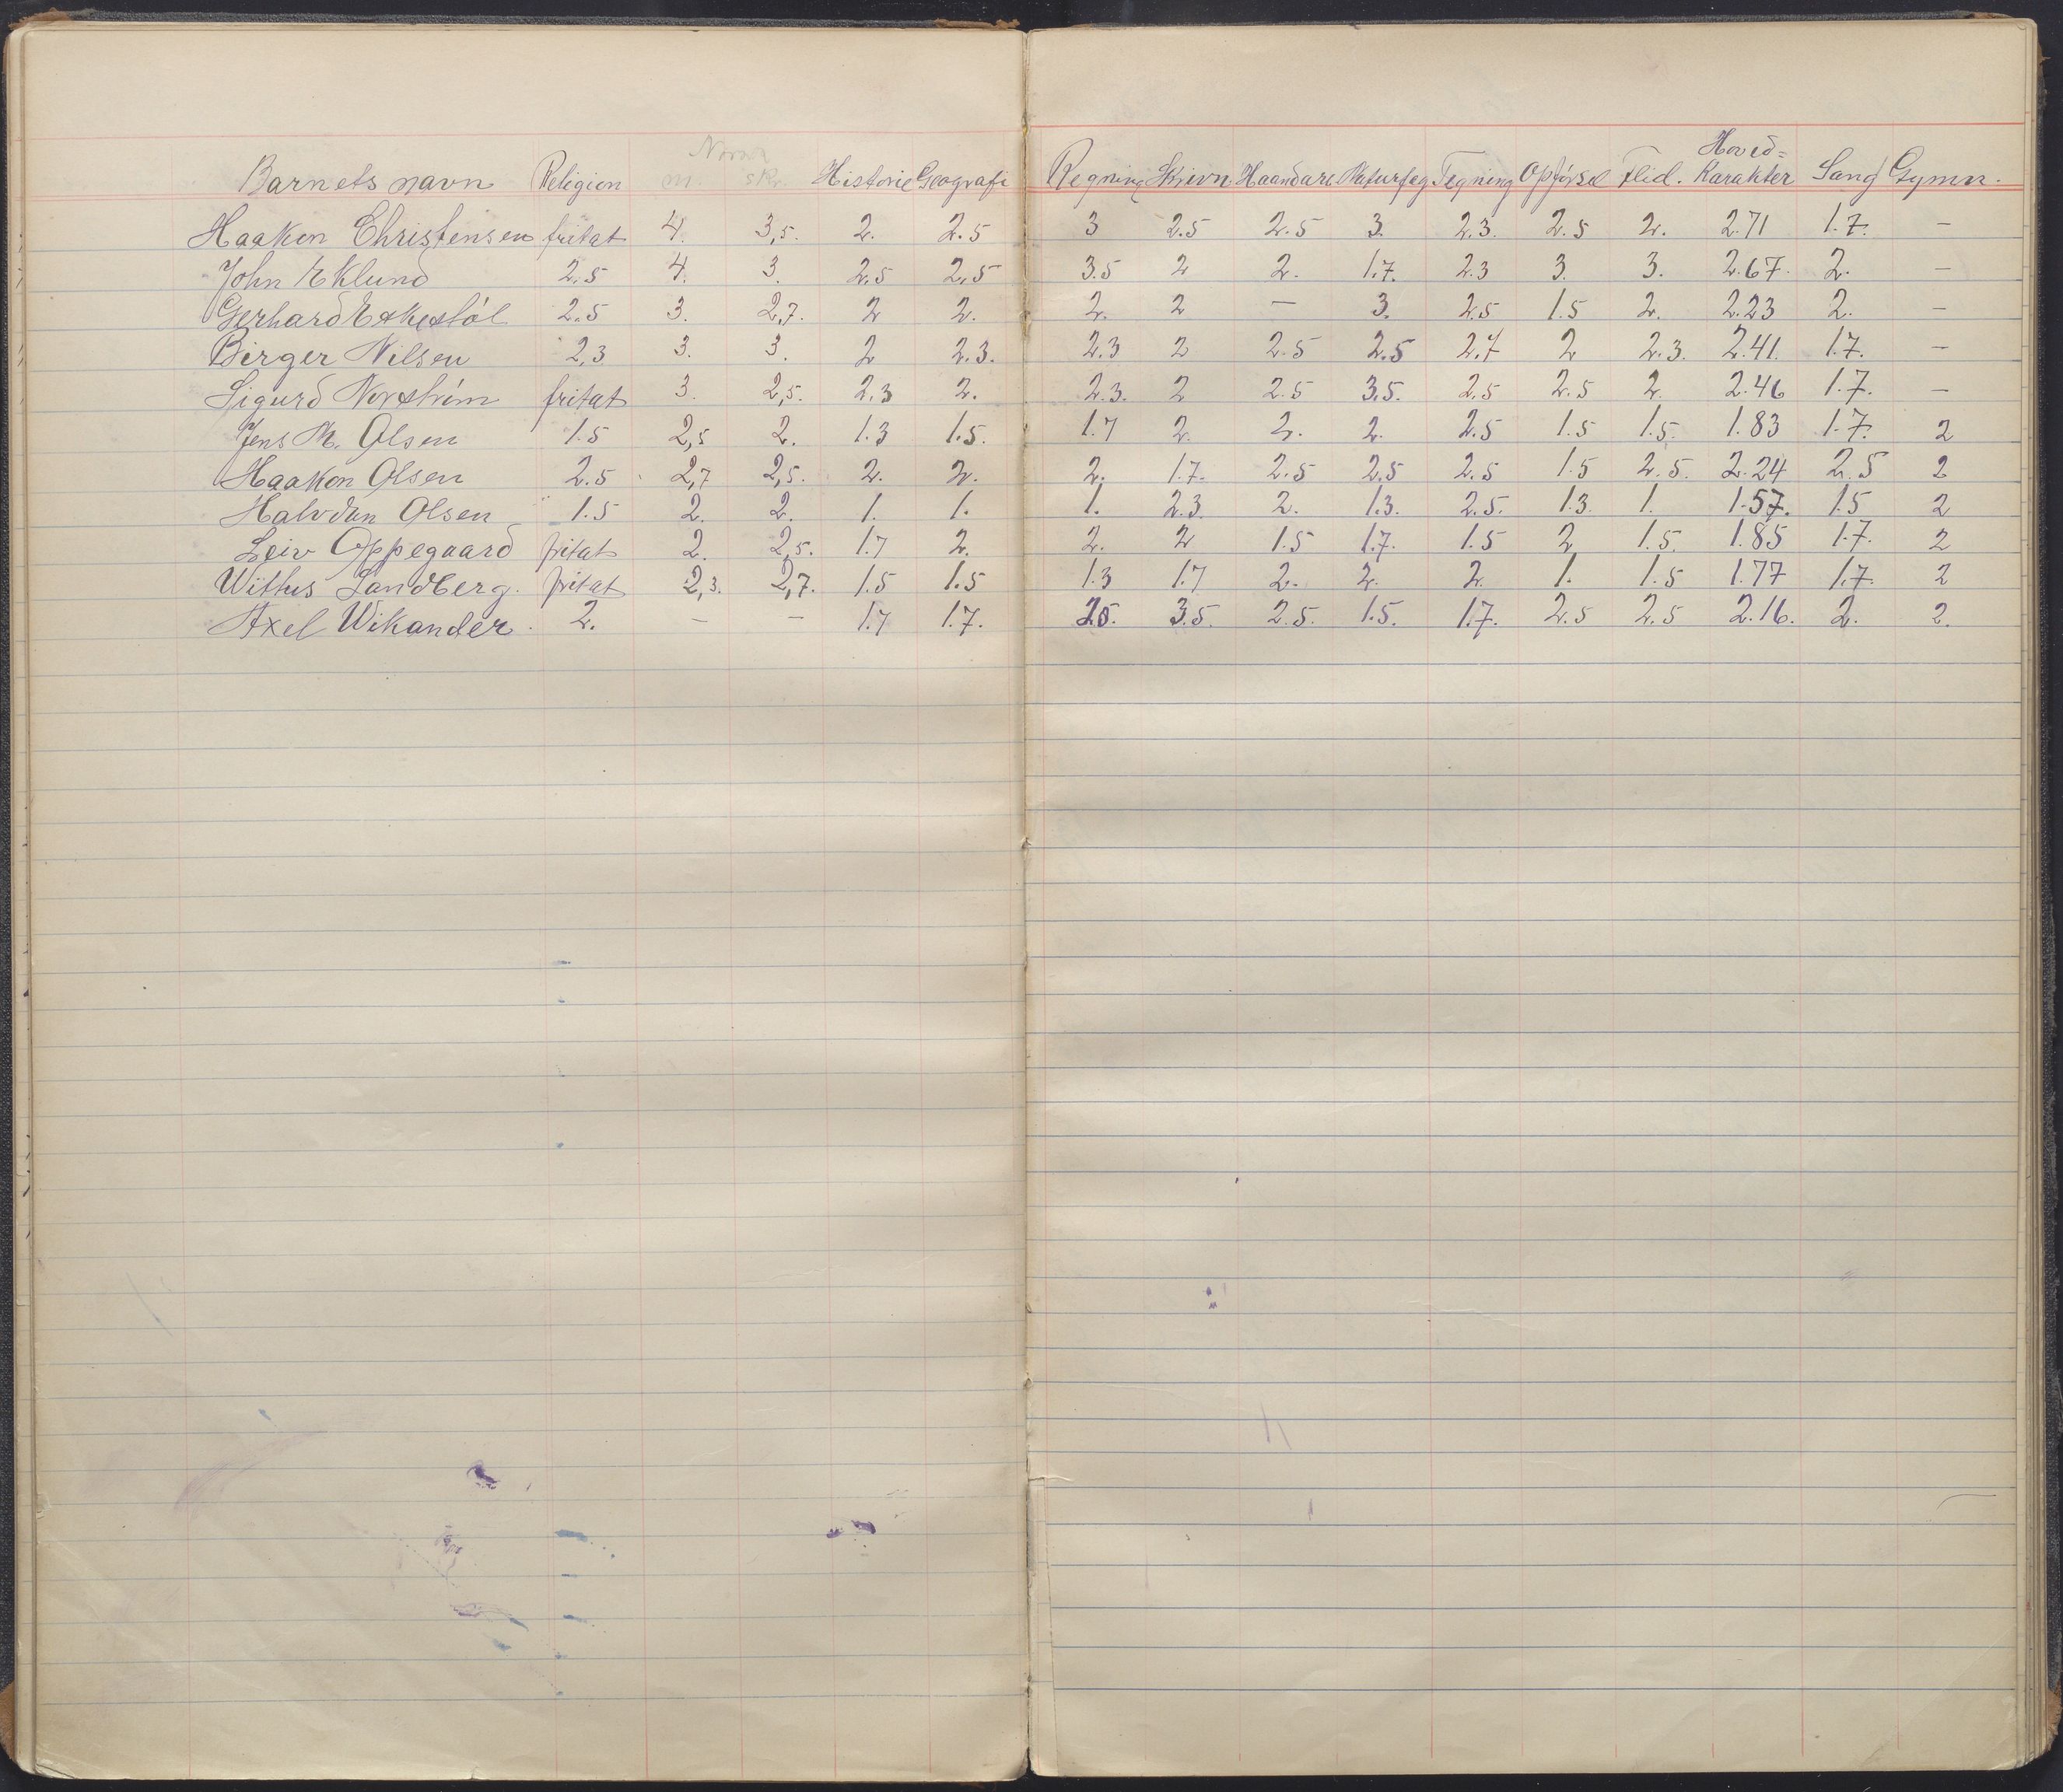 Norsk Hoved=
Barnets navn Religion m. skr. Historie Geografi Regning Skrivn Haandarb. Naturfag Tegning Opførsel Flid. Karakter Sang Gymn.
Haakon Christensen fritat 4. 3,5. 2. 2.5 3 2.5 2.5 3. 2.3. 2.5 2. 2.71 1.7. —
John Eklund 2.5 4. 3. 2.5 2.5 3.5 2 2. 1.7. 2.3 3. 3. 2.67. 2. —
Gerhard 2.5 3. 2,7. 2 2. 2. 2 — 3. 2.5 1.5 2. 2.23 2. —
Birger Nilsen 2,3 3. 3. 2 2.3. 2.3 2 2.5 2.5 2.7 2 2.3. 2.41. 1.7. —
Sigurd Norstrøm fritat 3. 2,5. 2,3 2. 2.3. 2 2.5 3.5. 2.5 2.5 2. 2.46 1.7. —
Jens M. Olsen 1.5 2,5 2. 1.3 1.5. 1.7 2. 2. 2. 2.5 1.5 1.5. 1.83 1.7. 2
Haakon Olsen 2.5 2,7 2,5. 2. 2. 2. 1.7. 2.5 2.5 2.5 1.5 2.5. 2.24 2.5 2
Halvdan Olsen 1.5 2. 2. 1. 1. 1. 2.3. 2. 1.3. 2.5. 1.3. 1. 1.57. 1.5 2
Leiv Oppegaard fritat 2. 2,5. 1.7 2. 2. 2 1.5 1.7. 1.5 2 1.5. 1.85 1.7. 2
Withus Sandberg. fritat 2,3. 2,7. 1.5 1.5 1.3 1.7 2. 2. 2. 1. 1.5 1.77 1.7. 2
Axel Wikander. 2. — — 1.7 1.7. 2.5. 3.5. 2.5. 1.5. 1.7. 2.5 2.5 2.16. 2. 2.